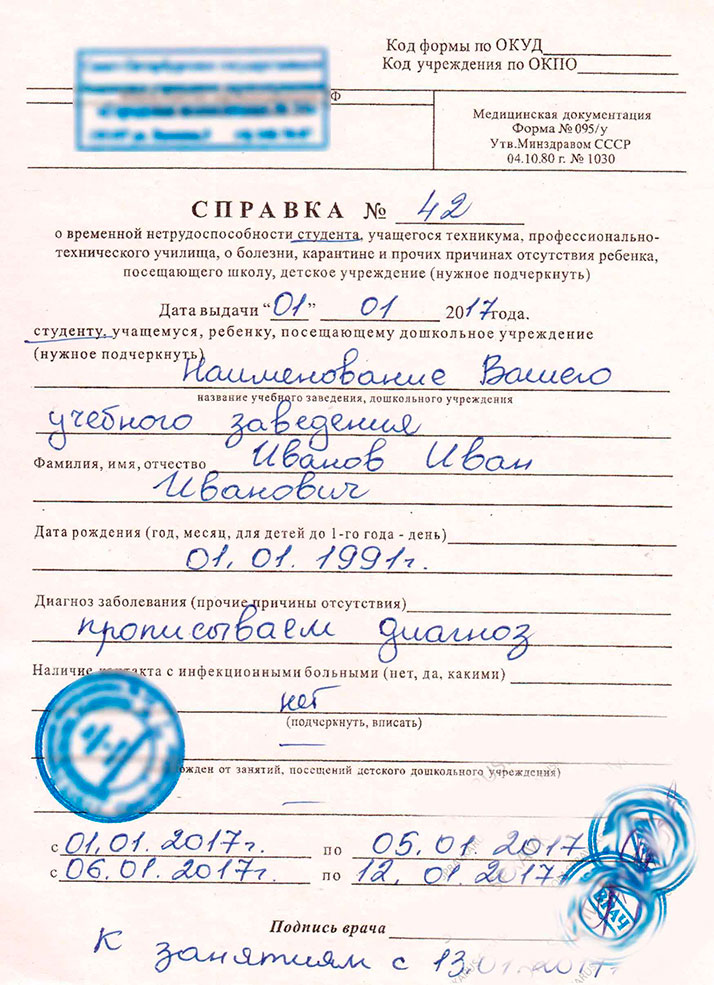 Код формы по ОКУД
Код учреждения по ОКПО
Ф
Медицинская документация
Форма № 095/у
Утв.Минздравом СССР
04.10.80 г. № 1030
СПРАВКА № 42
о временной нетрудоспособности студента, учащегося техникума, профессионально-
технического училища, о болезни, карантине и прочих причинах отсутствия ребенка,
посещающего школу, детское учреждение (нужное подчеркнуть)
Дата выдачи “01” 01 2017года.
студенту, учащемуся, ребенку, посещающему дошкольное учреждение
(нужное подчеркнуть)
Наименование Вашего
название учебного заведения, дошкольного учреждения
учебного заведения
Фамилия, имя, отчество Иванов Иван
Иванович
Дата рождения (год, месяц, для детей до 1-го года - день)
01.01.1991г.
Диагноз заболевания (прочие причины отсутствия)
прописываем диагноз
Наличие контакта с инфекционными больными (нет, да, какими)
нет
(подчеркнуть, вписать)
—
от занятий, посещений детского дошкольного учреждения)
—
с 01.01.2017г. по 05.01.2017
с 06.01.2017г. по 12.01.2017г
ВРАЧ
Подпись врача
К занятиям с 13.01.2017г